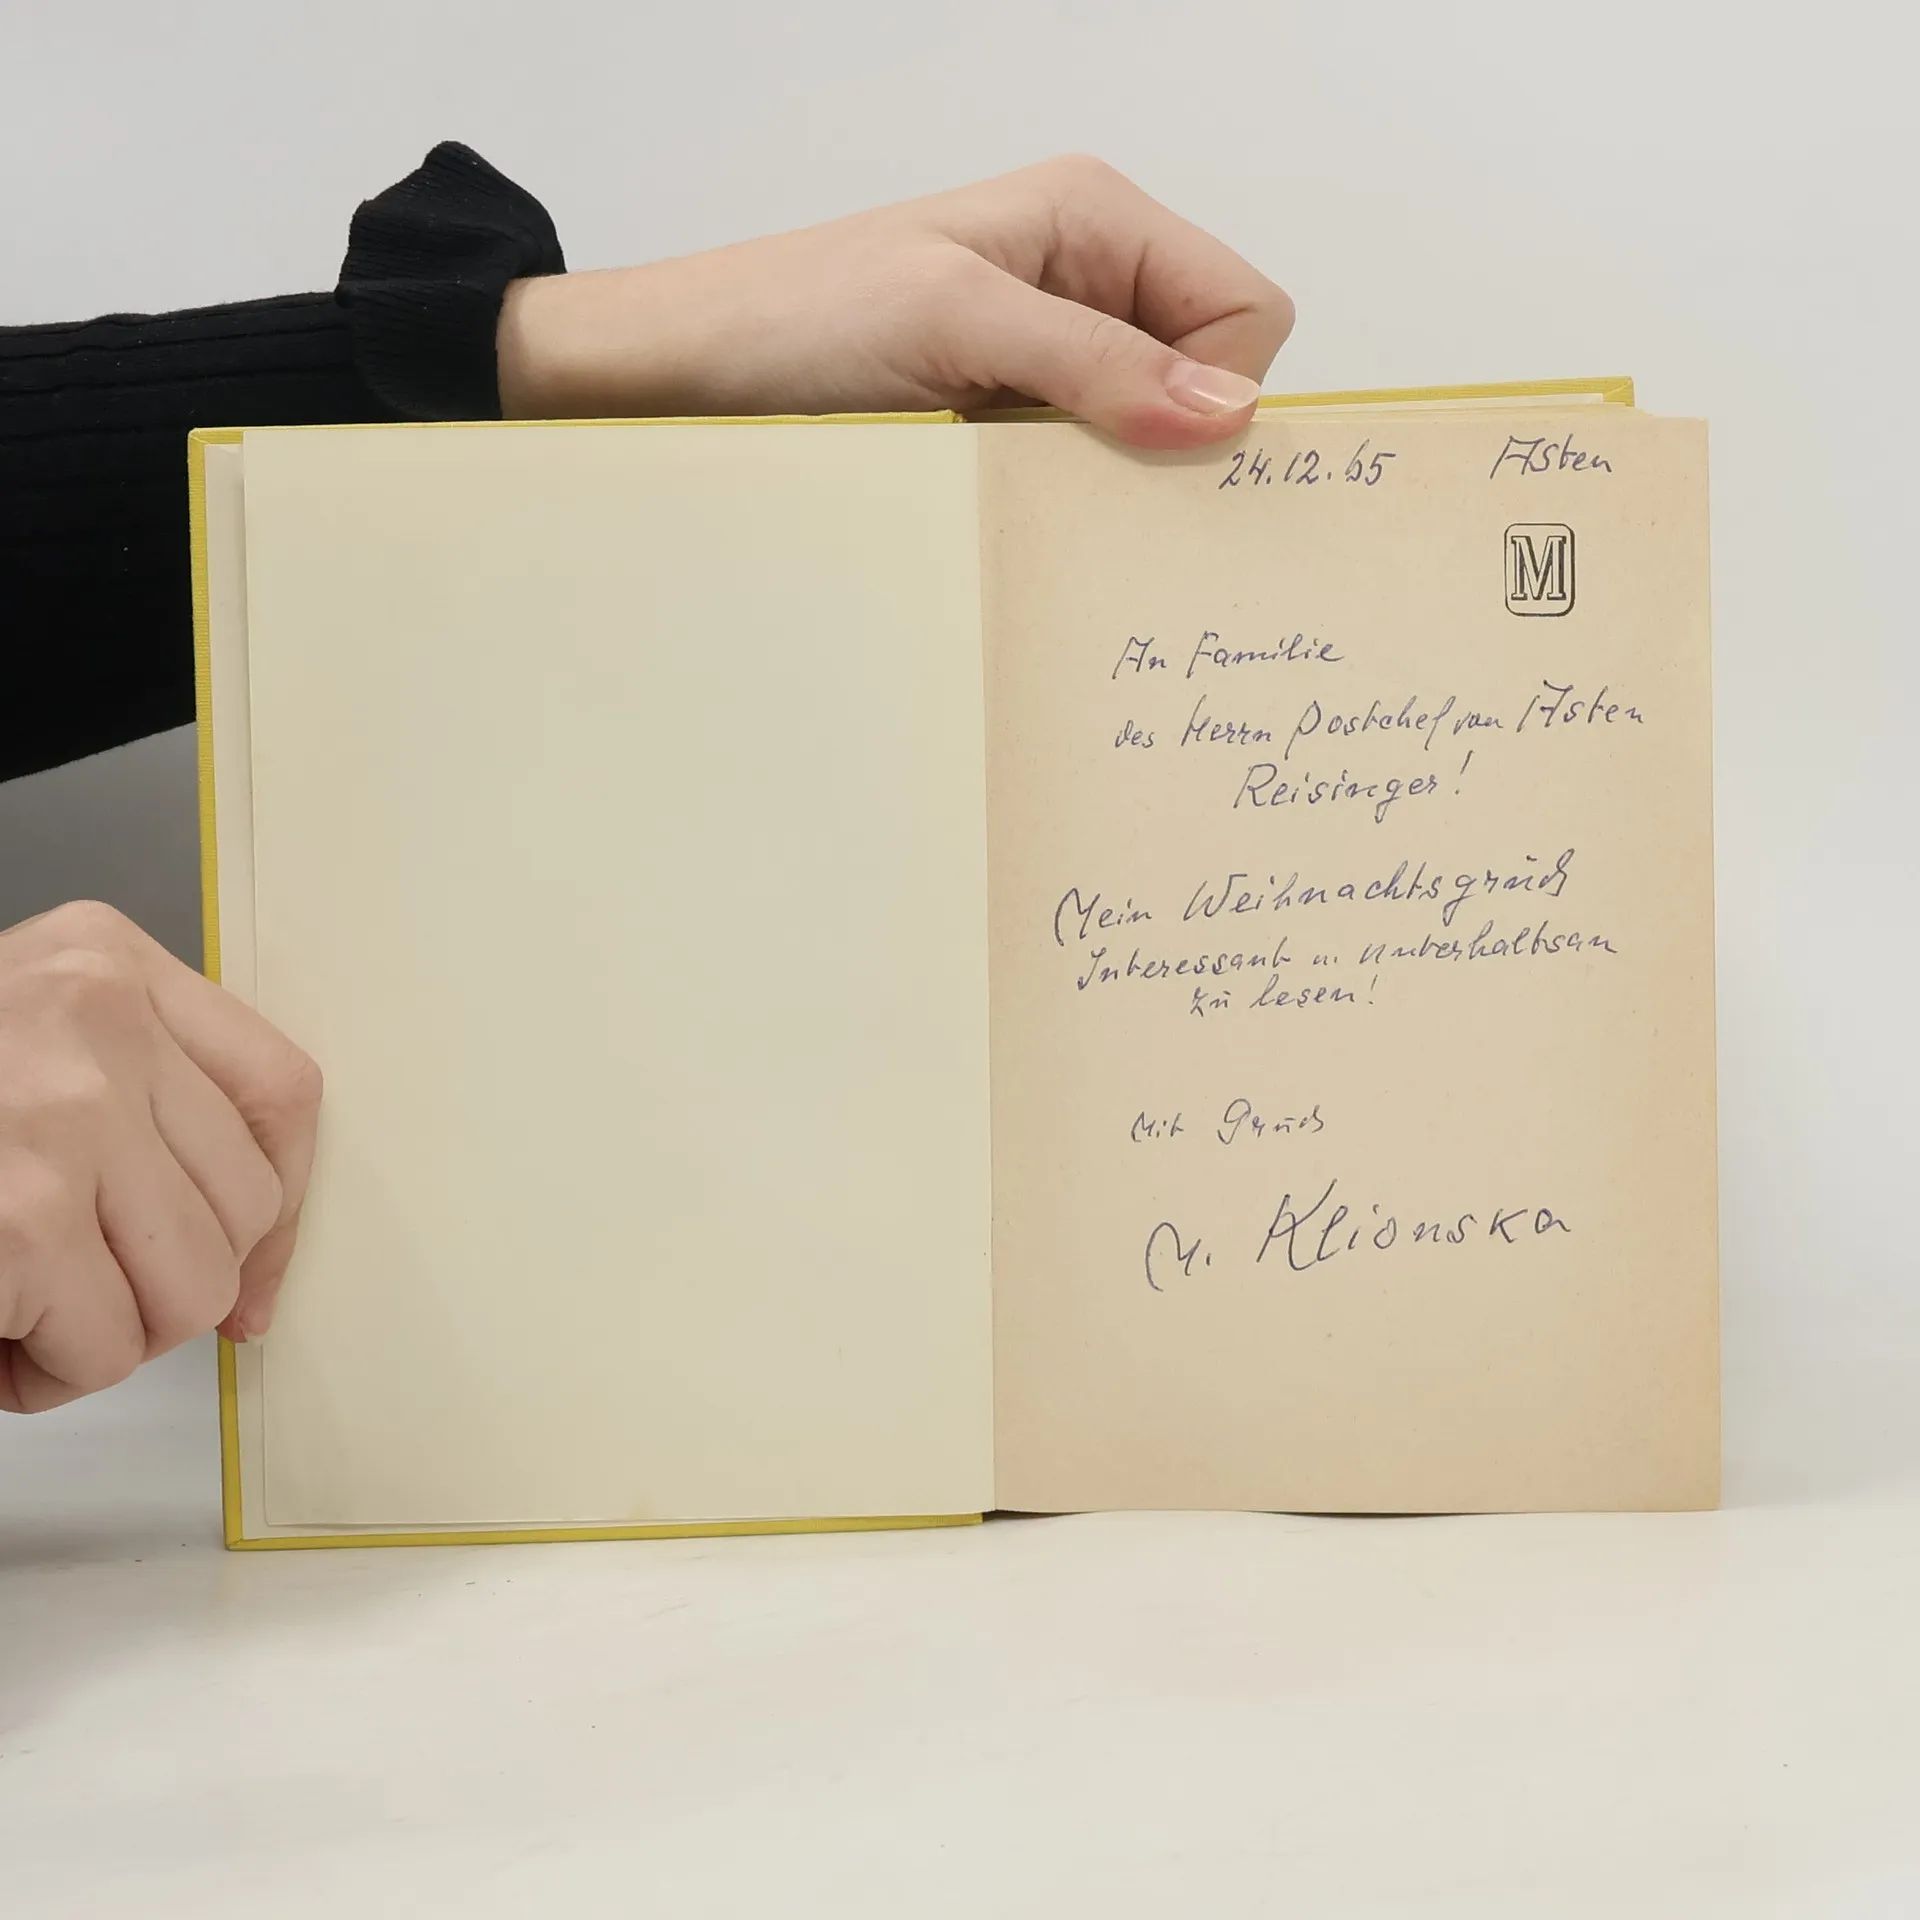 24.12.65 Asten
M
An Familie
des Herrn Postchef von Asten
Reisinger!
Mein Weihnachtsgruß
Interessant u. unterhaltsam
zu lesen!
Mit Gruß
M. Klionska